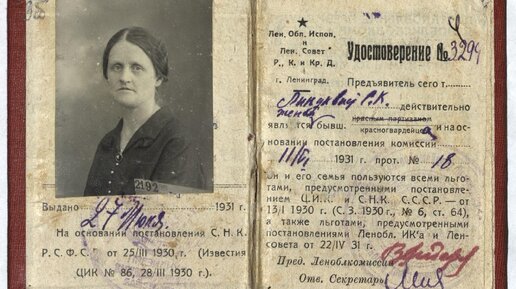 2192
Выдано 27 Июля 1931 г.
На основании постановления С. Н. К.
Р.С.Ф.С. от 25/III 1930 г. (Известия
ЦИК № 86, 28/III 1930 г.)
Лен. Обл. Испол.
и
Лен. Совет
Р., К. и Кр. Д.
г. Ленинград.
Удостоверение № 3294
Предъявитель сего т.
С.К. действительно
жена красным партизаном
является бывш. красногвардейца и на ос-
новании постановления комиссии
1931 г. прот. № 18
он и его семья пользуются всеми льго-
тами, предусмотренными постановле-
нием Ц.И.К. и С.Н.К. С.С.С.Р. — от
13/I 1930 г. (С. З. 1930 г., № 6, ст. 64),
а также льготами, предусмотренными
постановлениями Ленобл. ИК'а и Лен-
совета от 22/IV 31 г.
Пред. Леноблкомиссии
Отв. Секретарь